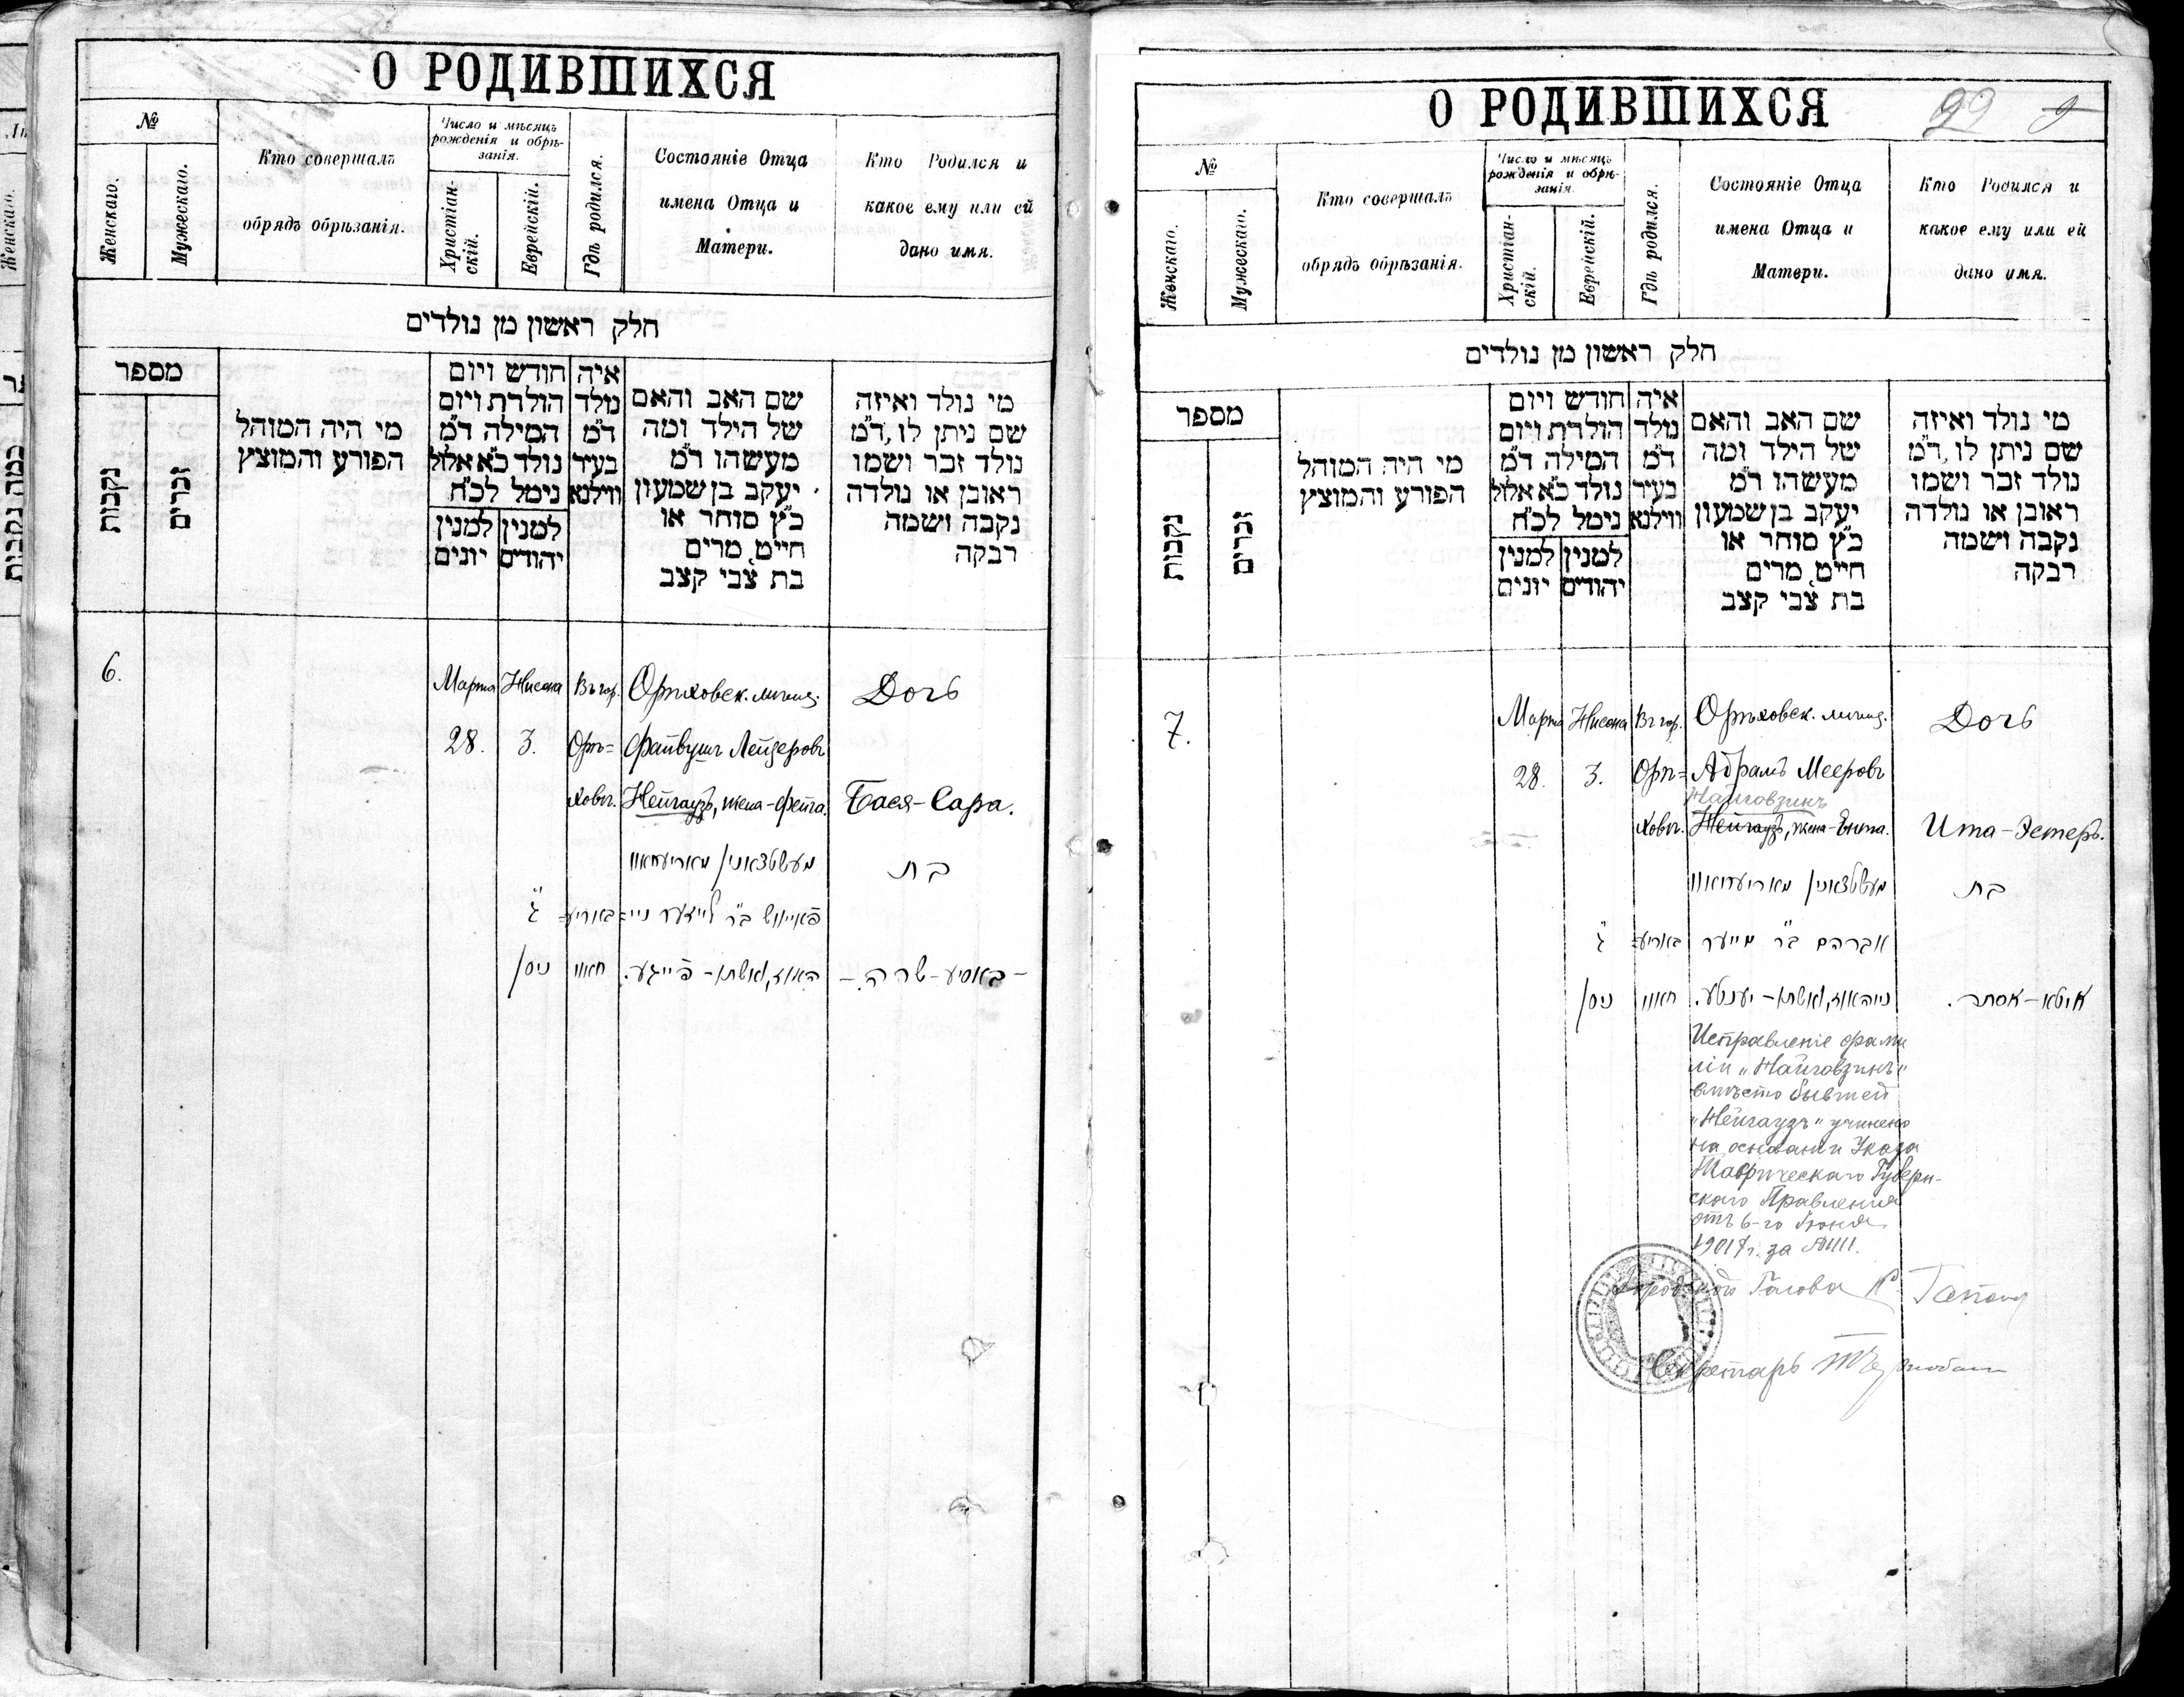 О РОДИВШИХСЯ
№
Женскаго.
Мужескаго.
Кто совершалъ
обрядъ обрѣзанія.
Число и мѣсяцъ
рожденія и обрѣ-
занія.
Христіан-
скій.
Еврейскій.
Гдѣ родился.
Состояніе Отца
имена Отца и
Матери.
Кто Родился и
какое ему или ей
дано имя.
חלק ראשון מן נולדים
מספר
נקבות
זכרים
מי היה המוהל
הפורע והמוצץ
חודש ויום
הולדת ויום
המילה ד״מ
נולד כ״א אלול
נימל לכ״ח
למנין
יהודים
למנין
יונים
איה
נולד
ד״מ
בעיר
ווילנא
שם האב והאם
של הילד ומה
מעשהו ד״מ
יעקב בן שמעון
כ״ץ סוחר או
חייט, מרים
בת צבי קצב
מי נולד ואיזה
שם ניתן לו, ד״מ
נולד זכר ושמו
ראובן או נולדה
נקבה ושמה
רבקה
6.
Марта
28.
Нисона
3.
Въ гор.
Орѣ=
ховѣ.
Орѣховск. мѣщ.
Файвушъ Лейзеровъ
Нейгаузъ, жена-Фейга.
Дочь
Бася-Сара.
ג״
ניסן
באריע=
חאוו
מעשטצאנין מאריעחאוו
פאייוויש ב״ר לייזער ניי=
האוז, ואשתו - פייגע.
בת
- באסיע-שרה. -
О РОДИВШИХСЯ
22
№
Женскаго.
Мужескаго.
Кто совершалъ
обрядъ обрѣзанія.
Число и мѣсяцъ
рожденія и обрѣ-
занія.
Христіан-
скій.
Еврейскій.
Гдѣ родился.
Состояніе Отца
имена Отца и
Матери.
Кто Родился и
какое ему или ей
дано имя.
חלק ראשון מן נולדים
מספר
נקבות
זכרים
מי היה המוהל
הפורע והמוצץ
חודש ויום
הולדת ויום
המילה ד״מ
נולד כ״א אלול
נימל לכ״ח
למנין
יהודים
למנין
יונים
איה
נולד
ד״מ
בעיר
ווילנא
שם האב והאם
של הילד ומה
מעשהו ד״מ
יעקב בן שמעון
כ״ץ סוחר או
חייט, מרים
בת צבי קצב
מי נולד ואיזה
שם ניתן לו, ד״מ
נולד זכר ושמו
ראובן או נולדה
נקבה ושמה
רבקה
7.
Марта
28.
Нисона
3.
Въ гор.
Орѣ=
ховѣ.
Орѣховск. мѣщ.
Абрамъ Мееровъ
Найговзинъ
Нейгаузъ, жена-Ента.
Дочь
Ита-Эстеръ.
ג״
ניסן
באריע=
חאוו
מעשטצאנין מאריעחאוו
אברהם ב״ר מייער
נייהאוז, ואשתו - יענטע.
בת
איטא-אסתר.
Исправленіе фами
ліи „Найговзинъ"
вмѣсто бывшей
„Нейгаузъ" учинено
на основаніи Указа
Таврическаго Губерн-
скаго Правленія
отъ 6-го Іюня
1901 г. за №
Городской Голова
Секретарь